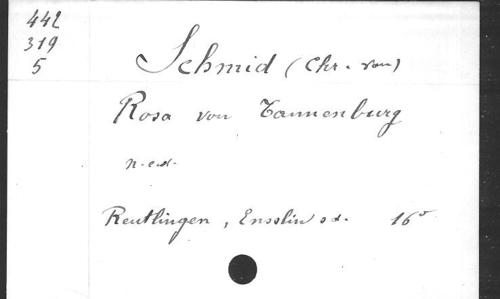 442
319
5
Schmid (Chr. von)
Rosa von Tannenburg
n. ed.
Reutlingen, Ensslin s d. 16°